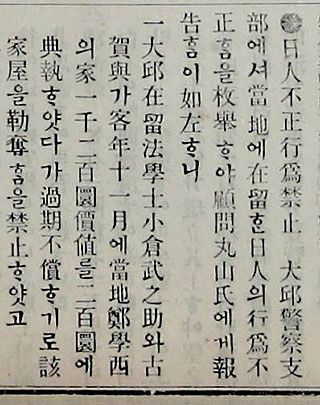 ◉日人不正行爲禁止 大邱警察支
部에셔當地에在留ᄒᆞᆫ日人의行爲不
正홈을枚擧ᄒᆞ야顧問丸山氏에게報
告홈이如左ᄒᆞ니
一大邱在留法學士小倉武之助와古
賀與가客年十一月에當地鄭學西
의家一千二百圜價値를二百圜에
典執ᄒᆞ얏다가過期不償ᄒᆞ기로該
家屋을勒奪홈을禁止ᄒᆞ얏고